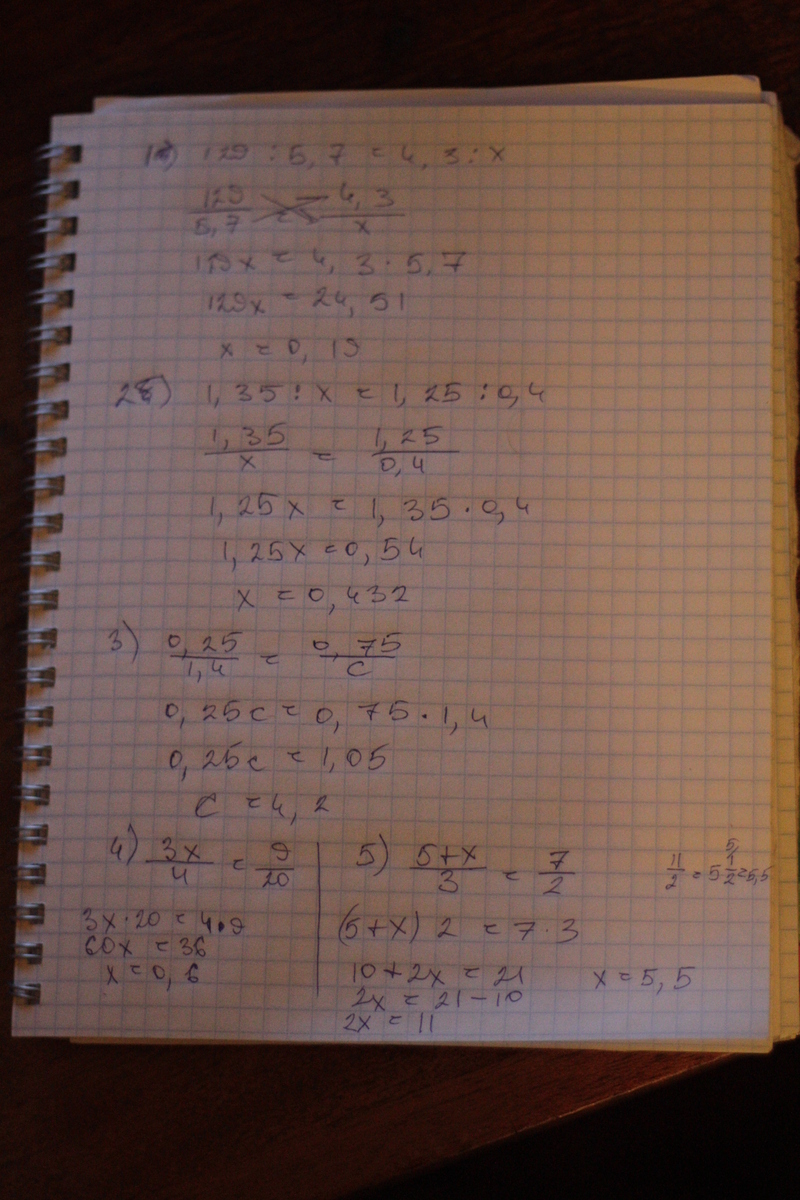 1) 129 : 5,7 = 4,3 : x
129/5,7 = 4,3/x
129x = 4,3 · 5,7
129x = 24,51
x = 0,19
2) 1,35 : x = 1,25 : 0,4
1,35/x = 1,25/0,4
1,25x = 1,35 · 0,4
1,25x = 0,54
x = 0,432
3) 0,25/1,4 = 0,75/c
0,25c = 0,75 · 1,4
0,25c = 1,05
c = 4,2
4) 3x/4 = 9/20
3x · 20 = 4 · 9
60x = 36
x = 0,6
5) 5+x/3 = 7/2
(5+x) 2 = 7 · 3
10 + 2x = 21
2x = 21 - 10
2x = 11
x = 5,5
11/2 = 5 1/2 = 5,5